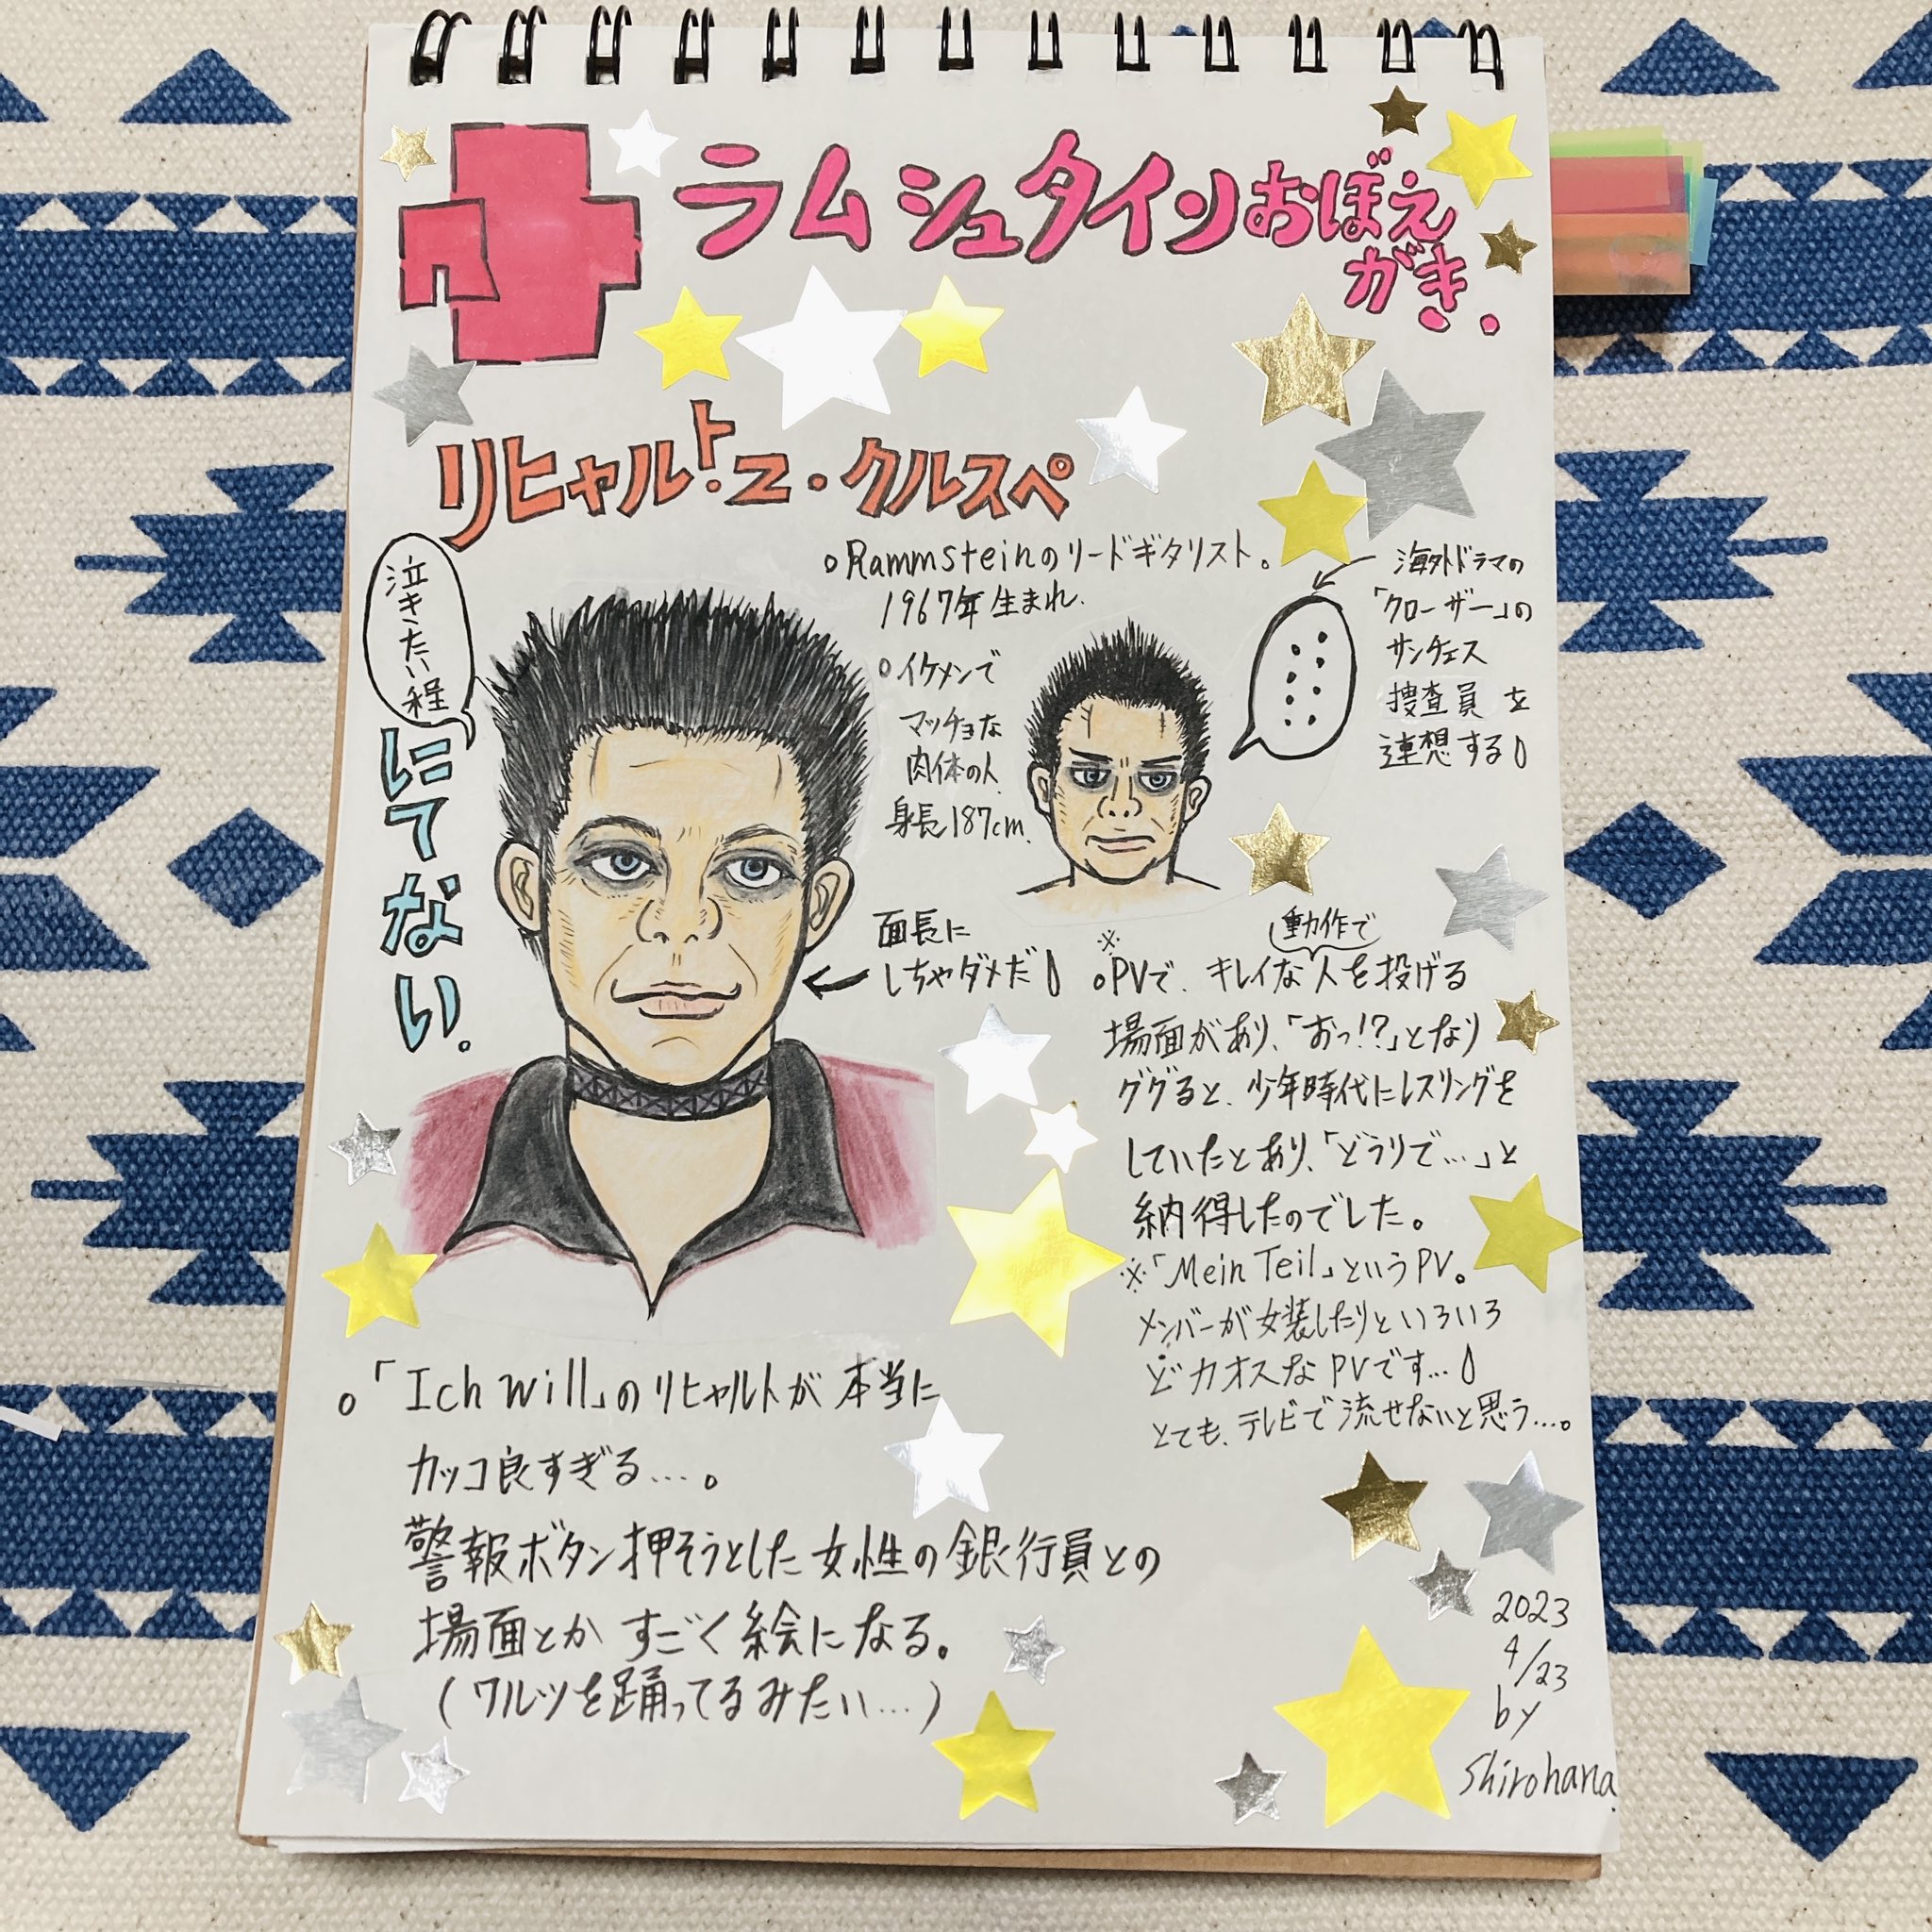 ラムシュタインおぼえ
がき.
リヒャルト.Z・クルスペ
泣きたい程
にてない。
○Rammsteinのリードギタリスト。
1967年生まれ.
○イケメンで
マッチョな
肉体の人.
身長187cm.
海外ドラマの
「クローザー」の
サンチェス
捜査員を
連想する
・・・・・・・・
面長に
しちゃダメだ
動作で
※
○PVで、キレイな人を投げる
場面があり、「おっ!?」となり
ググると、少年時代にレスリングを
していたとあり、「どうりで…」と
納得したのでした。
※「Mein Teil」というPV。
メンバーが女装したりといろいろ
どカオスなPVです…
とても、テレビで流せないと思う…。
○「Ich will」のリヒャルトが本当に
カッコ良すぎる…。
警報ボタン押そうとした女性の銀行員との
場面とかすごく絵になる。
(ワルツを踊ってるみたい…)
2023
4/23
by
Shirohana.